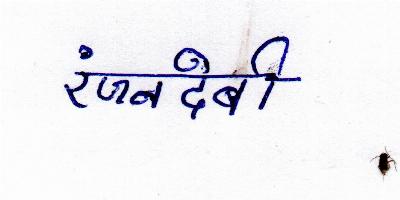 रंजन देवी